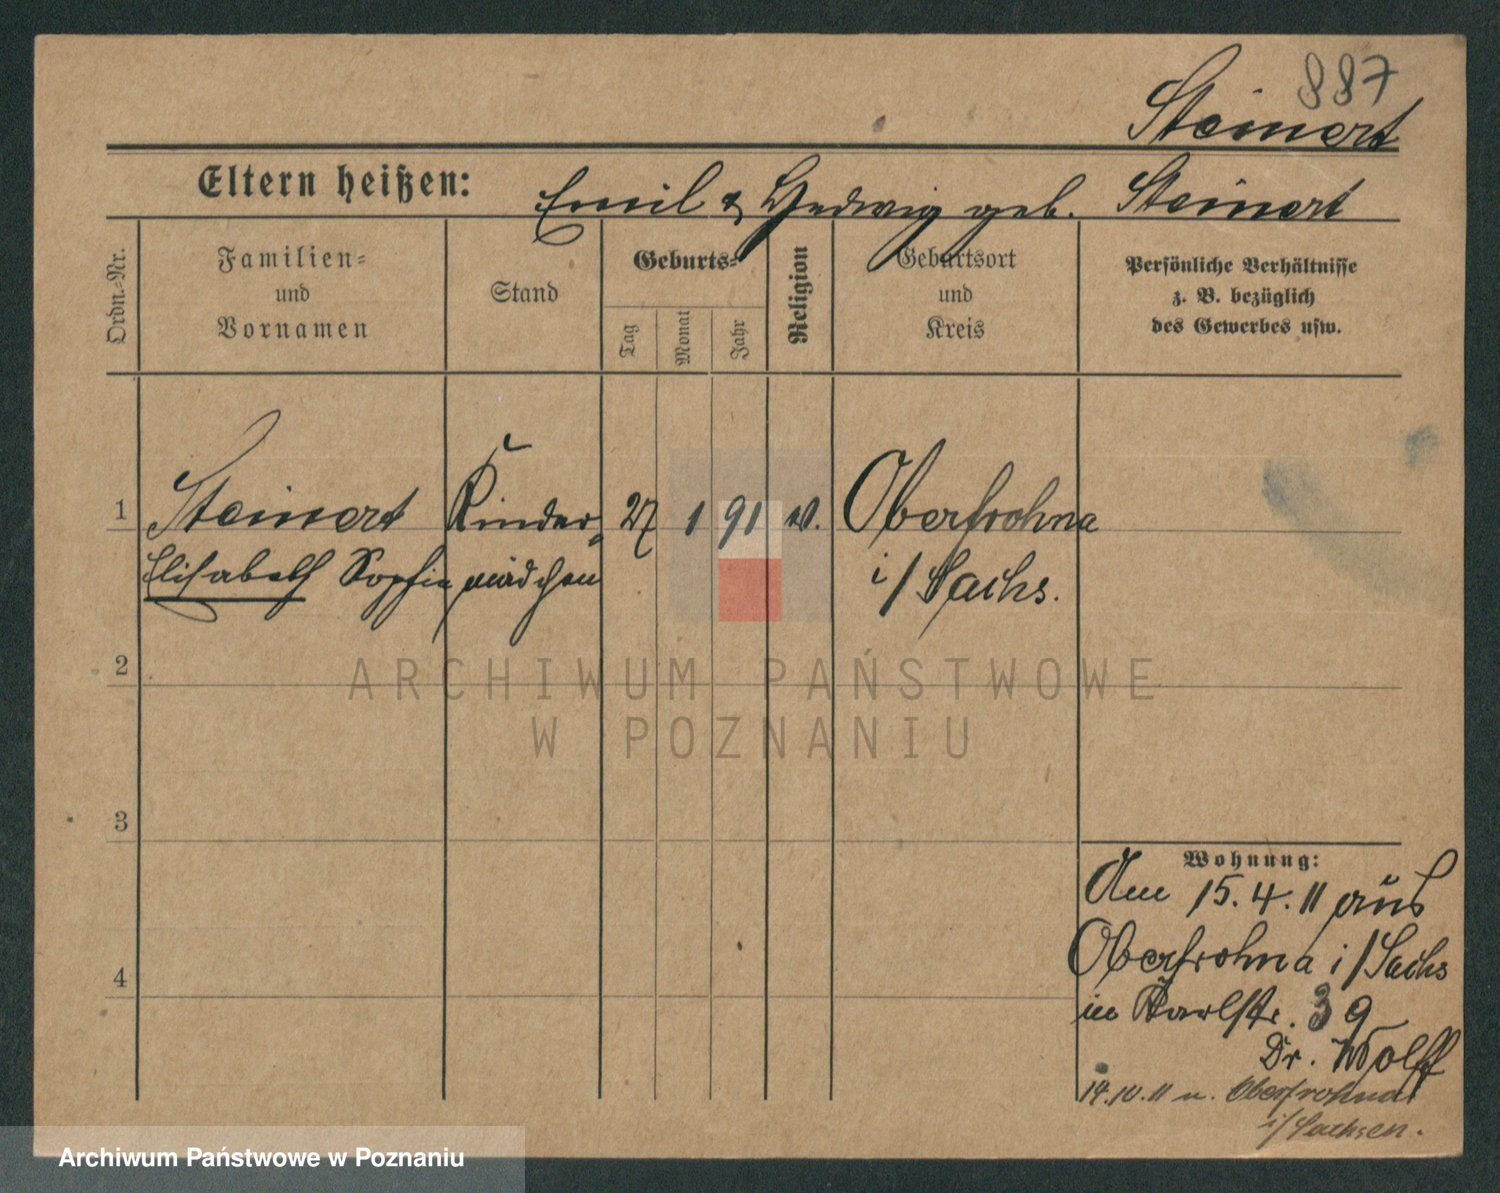 887
Steinert
Eltern heißen: Emil & Hedwig geb. Steinert
Ordn.-Nr.
Familien-
und
Vornamen
Stand
Geburts-
Tag
Monat
Jahr
Religion
Geburtsort
und
Kreis
Persönliche Verhältnisse
z. B. bezüglich
des Gewerbes usw.
1 Steinert Kinder- 27 1 91 Oberfrohna
Elisabeth Sophie mädchen i/Sachs.
2
3
4
Wohnung:
Am 15.4.11 aus
Oberfrohna i/Sachs
in Karlstr. 39
Dr. Wolff
14.10.11 n. Oberfrohna
i/Sachsen.
ARCHIWUM PAŃSTWOWE
W POZNANIU
Archiwum Państwowe w Poznaniu